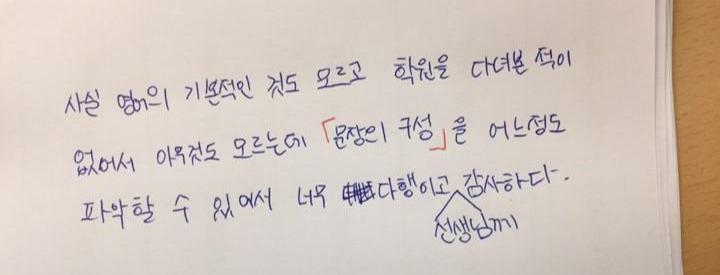 사실 영어의 기본적인 것도 모르고 학원을 다녀본 적이
없어서 아무것도 모르는데 「문장의 구성」을 어느정도
파악할 수 있어서 너무 다행이고 감사하다.
선생님께